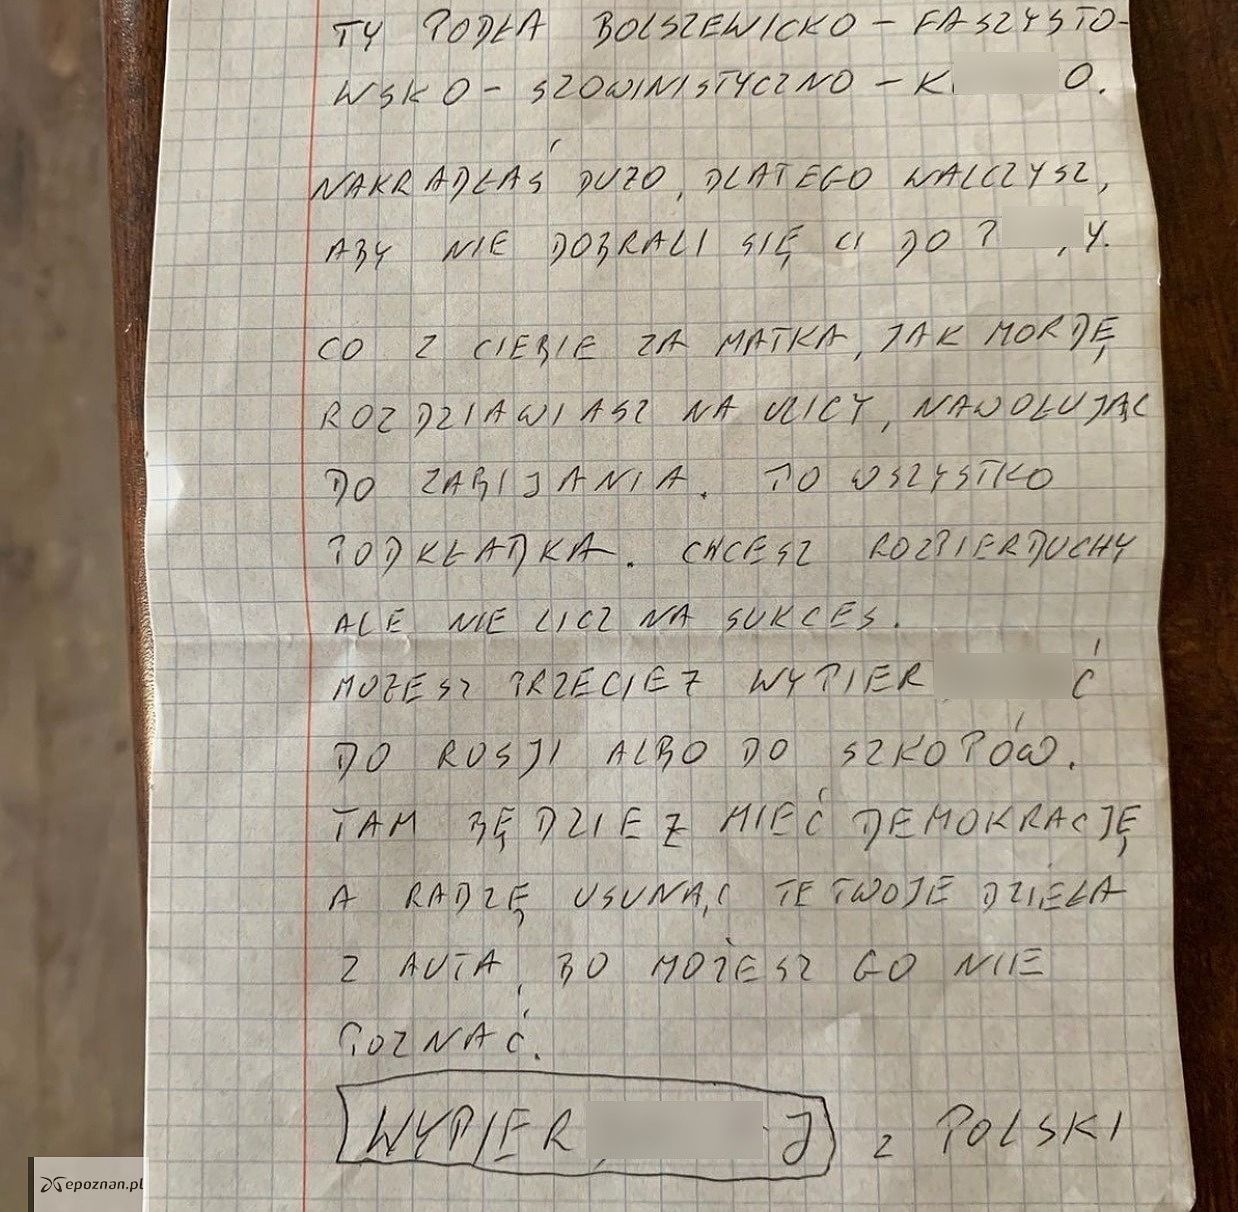 TY PODŁA BOLSZEWICKO - FASZYSTO-
WSKO - SZOWINISTYCZNO - K O.
NAKRADŁAŚ DUŻO, DLATEGO WALCZYSZ,
ABY NIE DOBRALI SIĘ CI DO P Y.
CO Z CIEBIE ZA MATKA, JAK MORDĘ
ROZDZIAWIASZ NA ULICY, NAWOŁUJĄC
DO ZABIJANIA. TO WSZYSTKO
PODKŁADKA. CHCESZ ROZPIERDUCHY
ALE NIE LICZ NA SUKCES.
MOŻESZ PRZECIEŻ WYPIER Ć
DO ROSJI ALBO DO SZKOPÓW.
TAM BĘDZIEZ MIEĆ DEMOKRACJĘ
A RADZĘ USUNĄĆ TE TWOJE DZIEŁA
Z AUTA, BO MOŻESZ GO NIE
POZNAĆ.
WYPIER J Z POLSKI
epoznan.pl